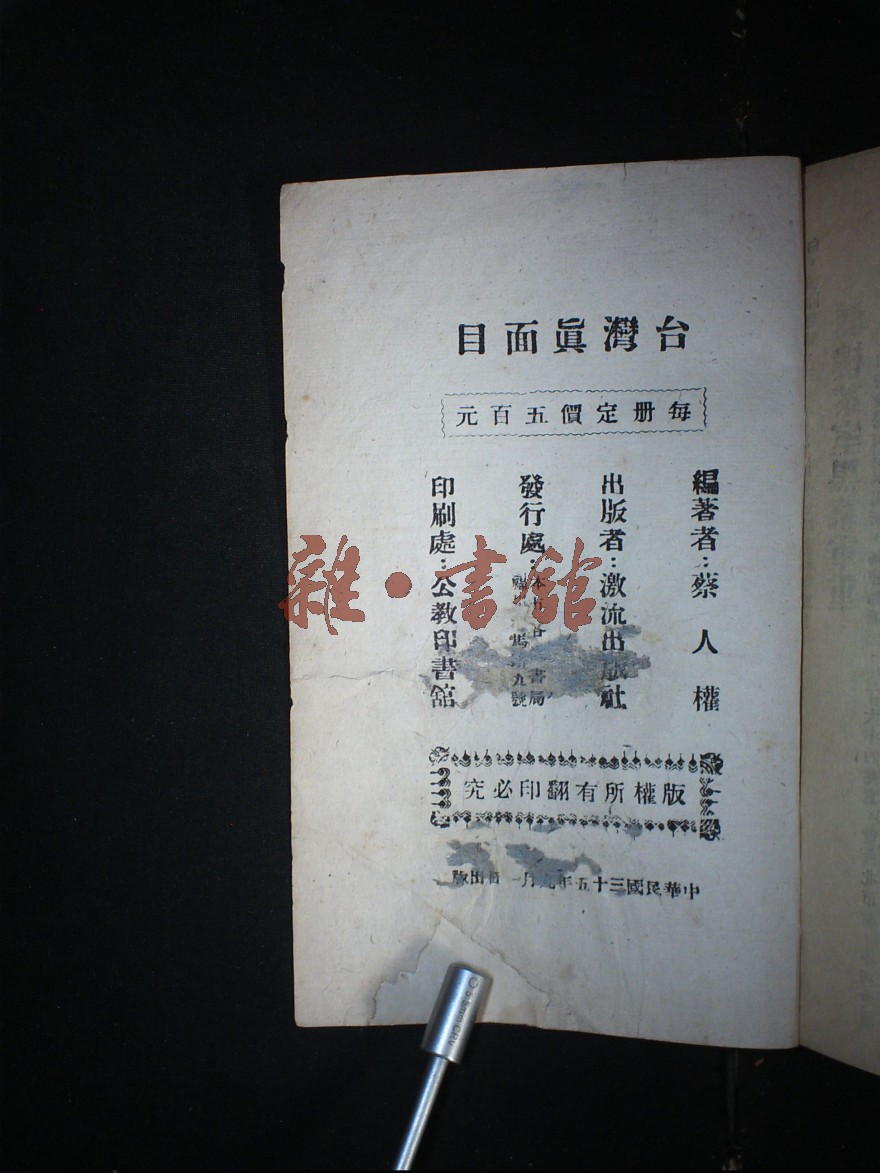 台灣眞面目
每册定價五百元
編著者：蔡人權
出版者：激流出版社
發行處：
書局
九號
印刷處：公教印書舘
版權所有翻印必究
中華民國三十五年九月一日出版
雜·書舘